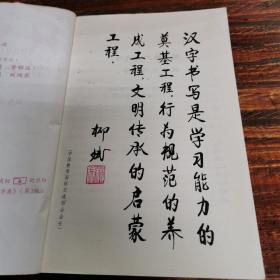 汉字书写是学习能力的
奠基工程，行为规范的养
成工程，文明传承的启蒙
工程。
柳斌